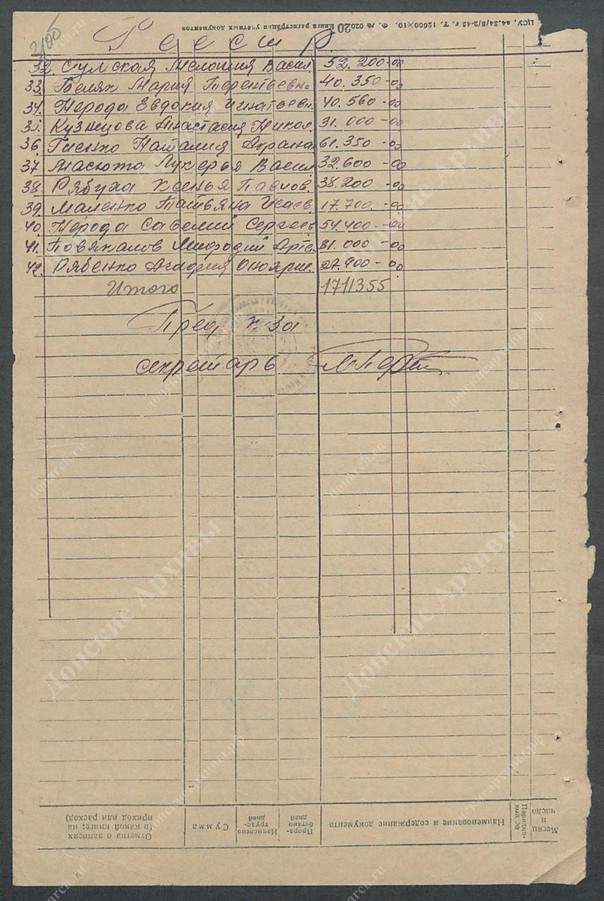 ЦСУ, а4.34/8/2-43 г. Т. 12600×10. Ф. № 02020 Книга регистрации учётных документов
Реестр
32 Сулская Мелошия Васил. 52.200-00
33. Беляк Мария Терентьевна 40.350-00
34. Перода Евдокия Игнатьевн. 40.560-00
35. Кузнецова Анастасия Никол. 31.000-00
36 Гненко Наталия 61.350-00
37 Масюто Лукерья Васил 32.600-00
38. Рябуха Ксенья Павлов. 38.200-00
39. Маленко Татьяна Исаев. 17.700-00
40. Перода Савелий Сергеев 54.400-00
41. Повяжалов 31.000-00
42. Рябенко 27.900-00
Итого 1711355
Пред. к-за
секретарь
Месяц и число
Порядковый №
Наименование и содержание документа
Проработано дней
Начислено трудодней
Сумма
Отметка о записях (в какой книге: на приход или расход)
Донские Архивы
donarch.ru